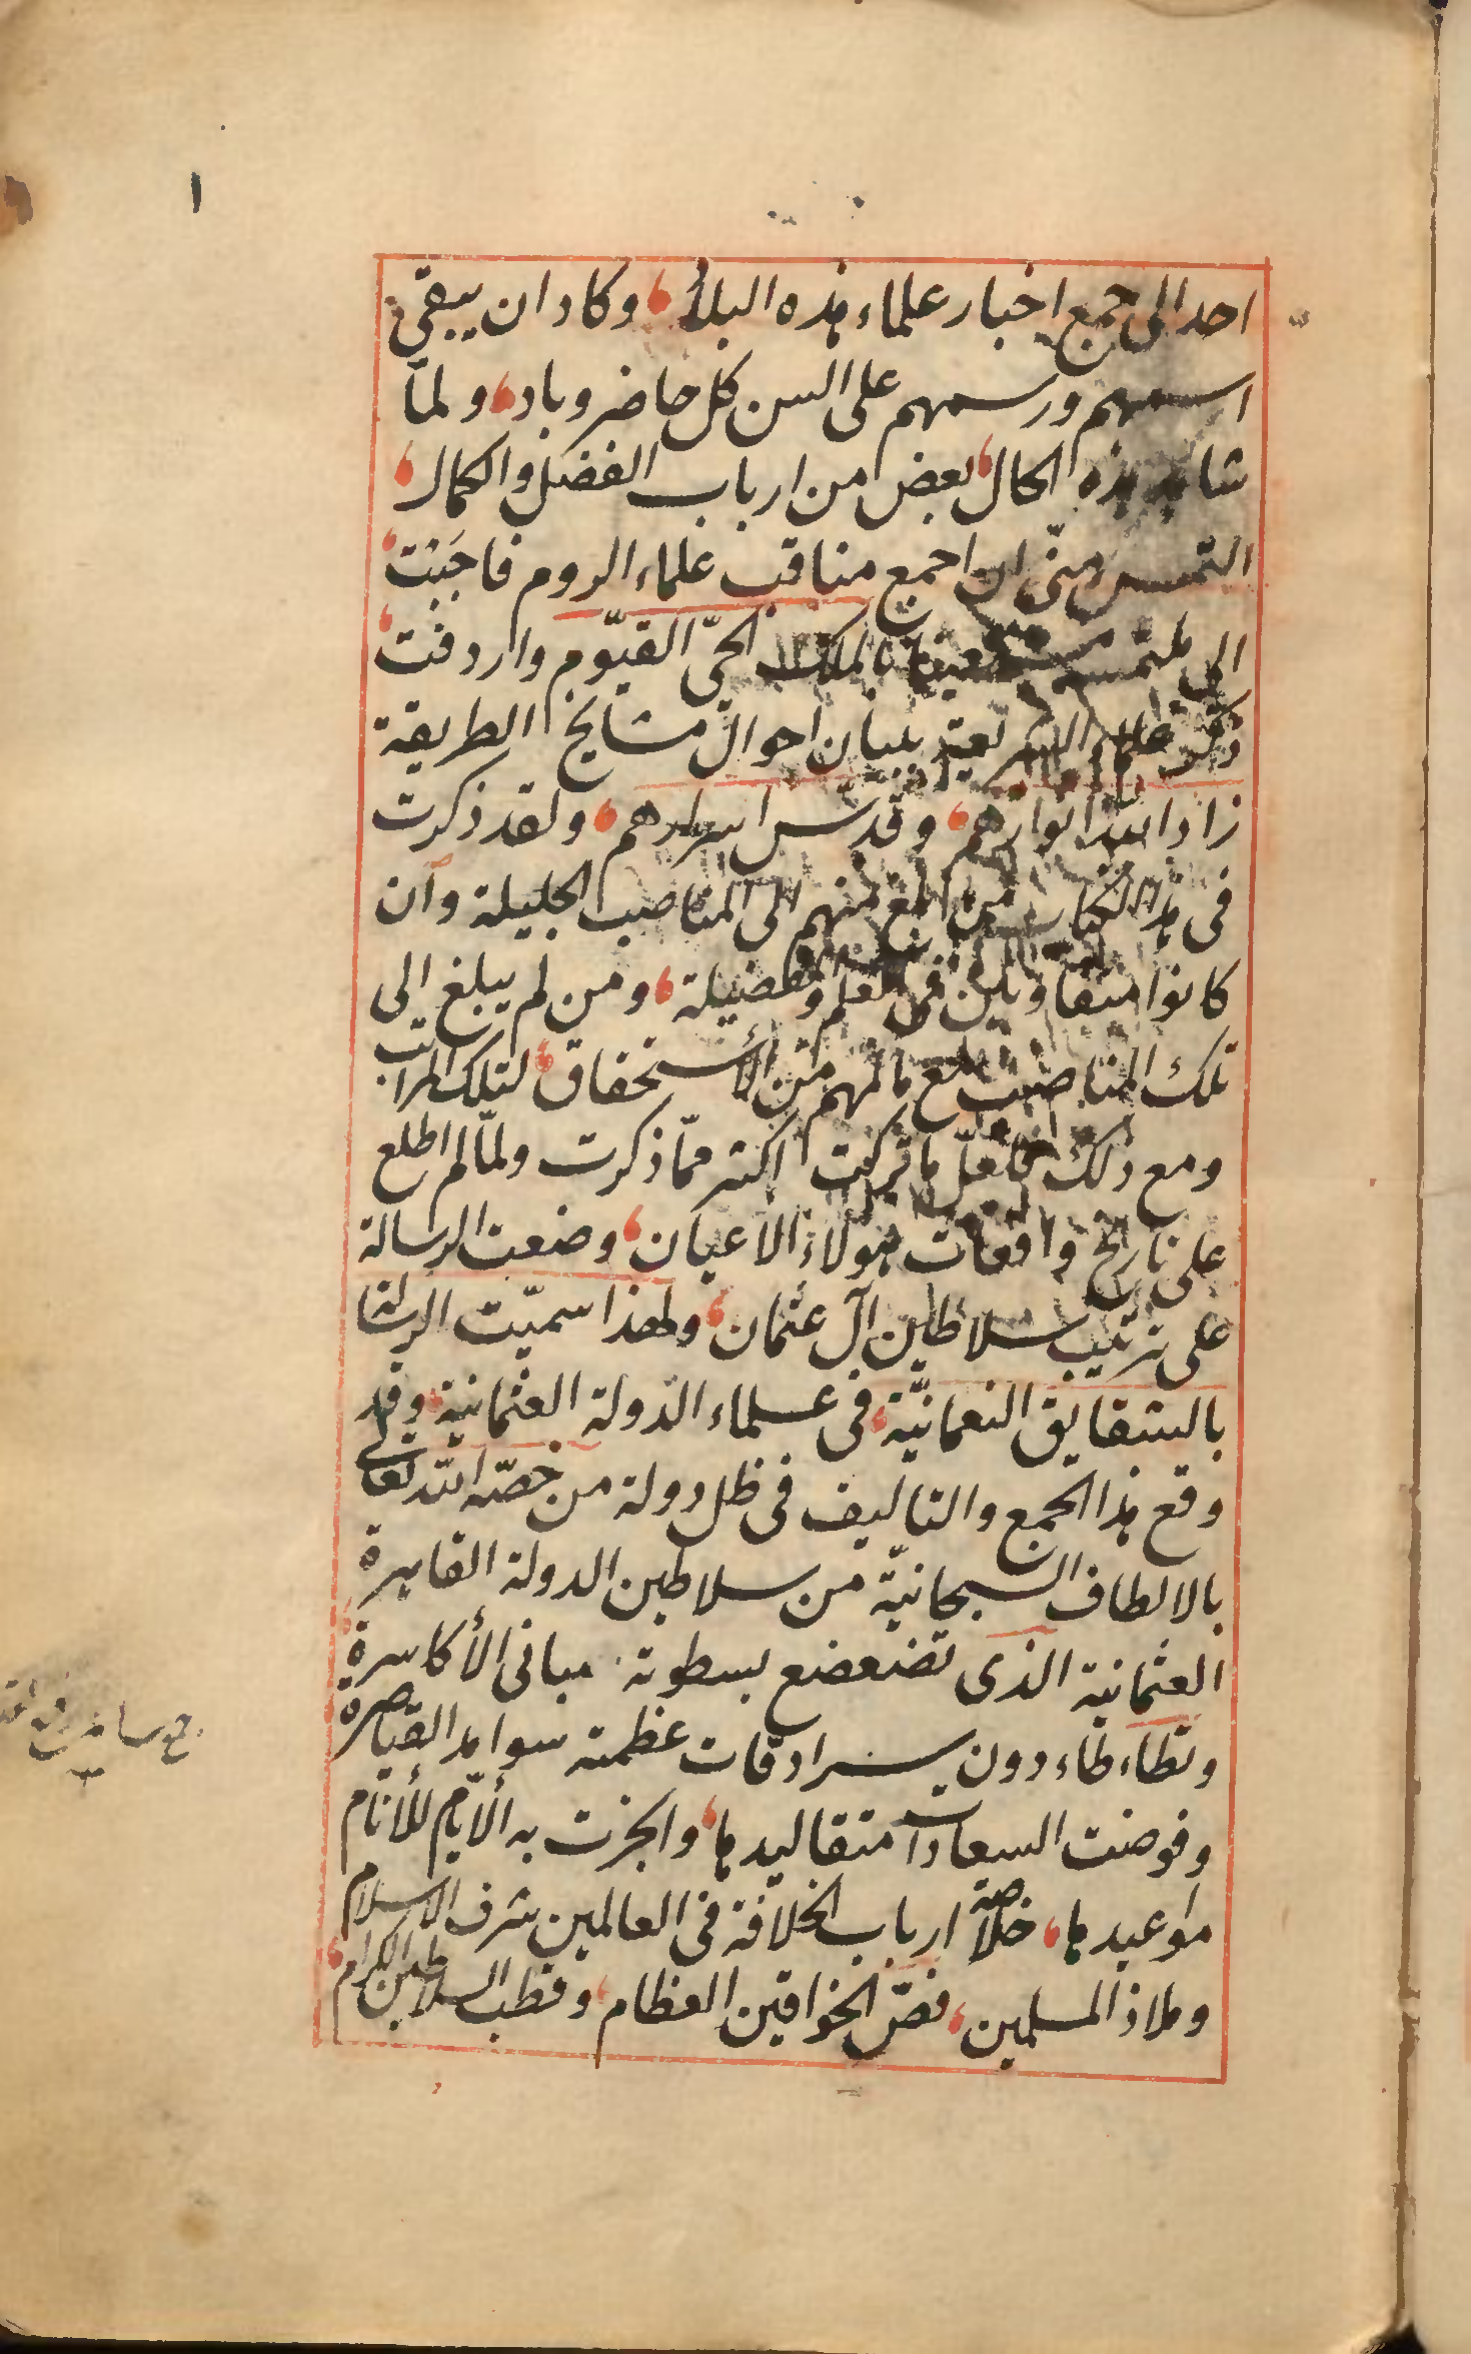 ١
احد الى جمع اخبار علماء هذه البلاد، وكاد ان يبقى
اسمهم ورسمهم على السن كل حاضر وباد، ولمّا
شاهد هذه الحال، بعض من ارباب الفضل والكمال،
التمس منّى ان اجمع مناقب علماء الروم فاجَبْت،
الى ملتمسه مستعينا بالملك الحىّ القيّوم واردفت،
ذكر علماء الشريعة ببيان احوال مشايخ الطريقة
زاد الله انوارهم، وقدّس اسرارهم، ولقد ذكرت
فى هذا الكتاب من بلغ منهم الى المناصب الجليلة وان
كانوا متفاوتين فى العلم والفضيلة، ومن لم يبلغ الى
تلك المناصب مع مالهم من الأستحقاق، لتلك المراتب
ومع ذلك فلعلّ ما تركت اكثر ممّا ذكرت ولمّا لم اطلع
على تاريخ واقعات هؤلاء الاعيان، وضعت الرسالة
على ترتيب سلاطين آل عثمان، ولهذا سميّت الرسالة
بالشقايق النعمانيّة، فى علماء الدّولة العثمانية، وقد
وقع هذا الجمع والتاليف فى ظل دولة من خصّه الله تعالى
بالالطاف السبحانيّة من سلاطين الدولة القاهرة
العثمانية الذى تضعضع بسطوته مبانى الأكاسرة،
وتطاءطاء دون سرادقات عظمته سوامد القياصرة،
وفوضت السعادات مقاليدها، وانجزت به الأيّام للأنام
مواعيدها، خلاصة ارباب الخلافة فى العالمين شرف الاسلام
وملاذ المسلمين، فصّ الخواقين العظام، وقطب السلاطين الكرام،